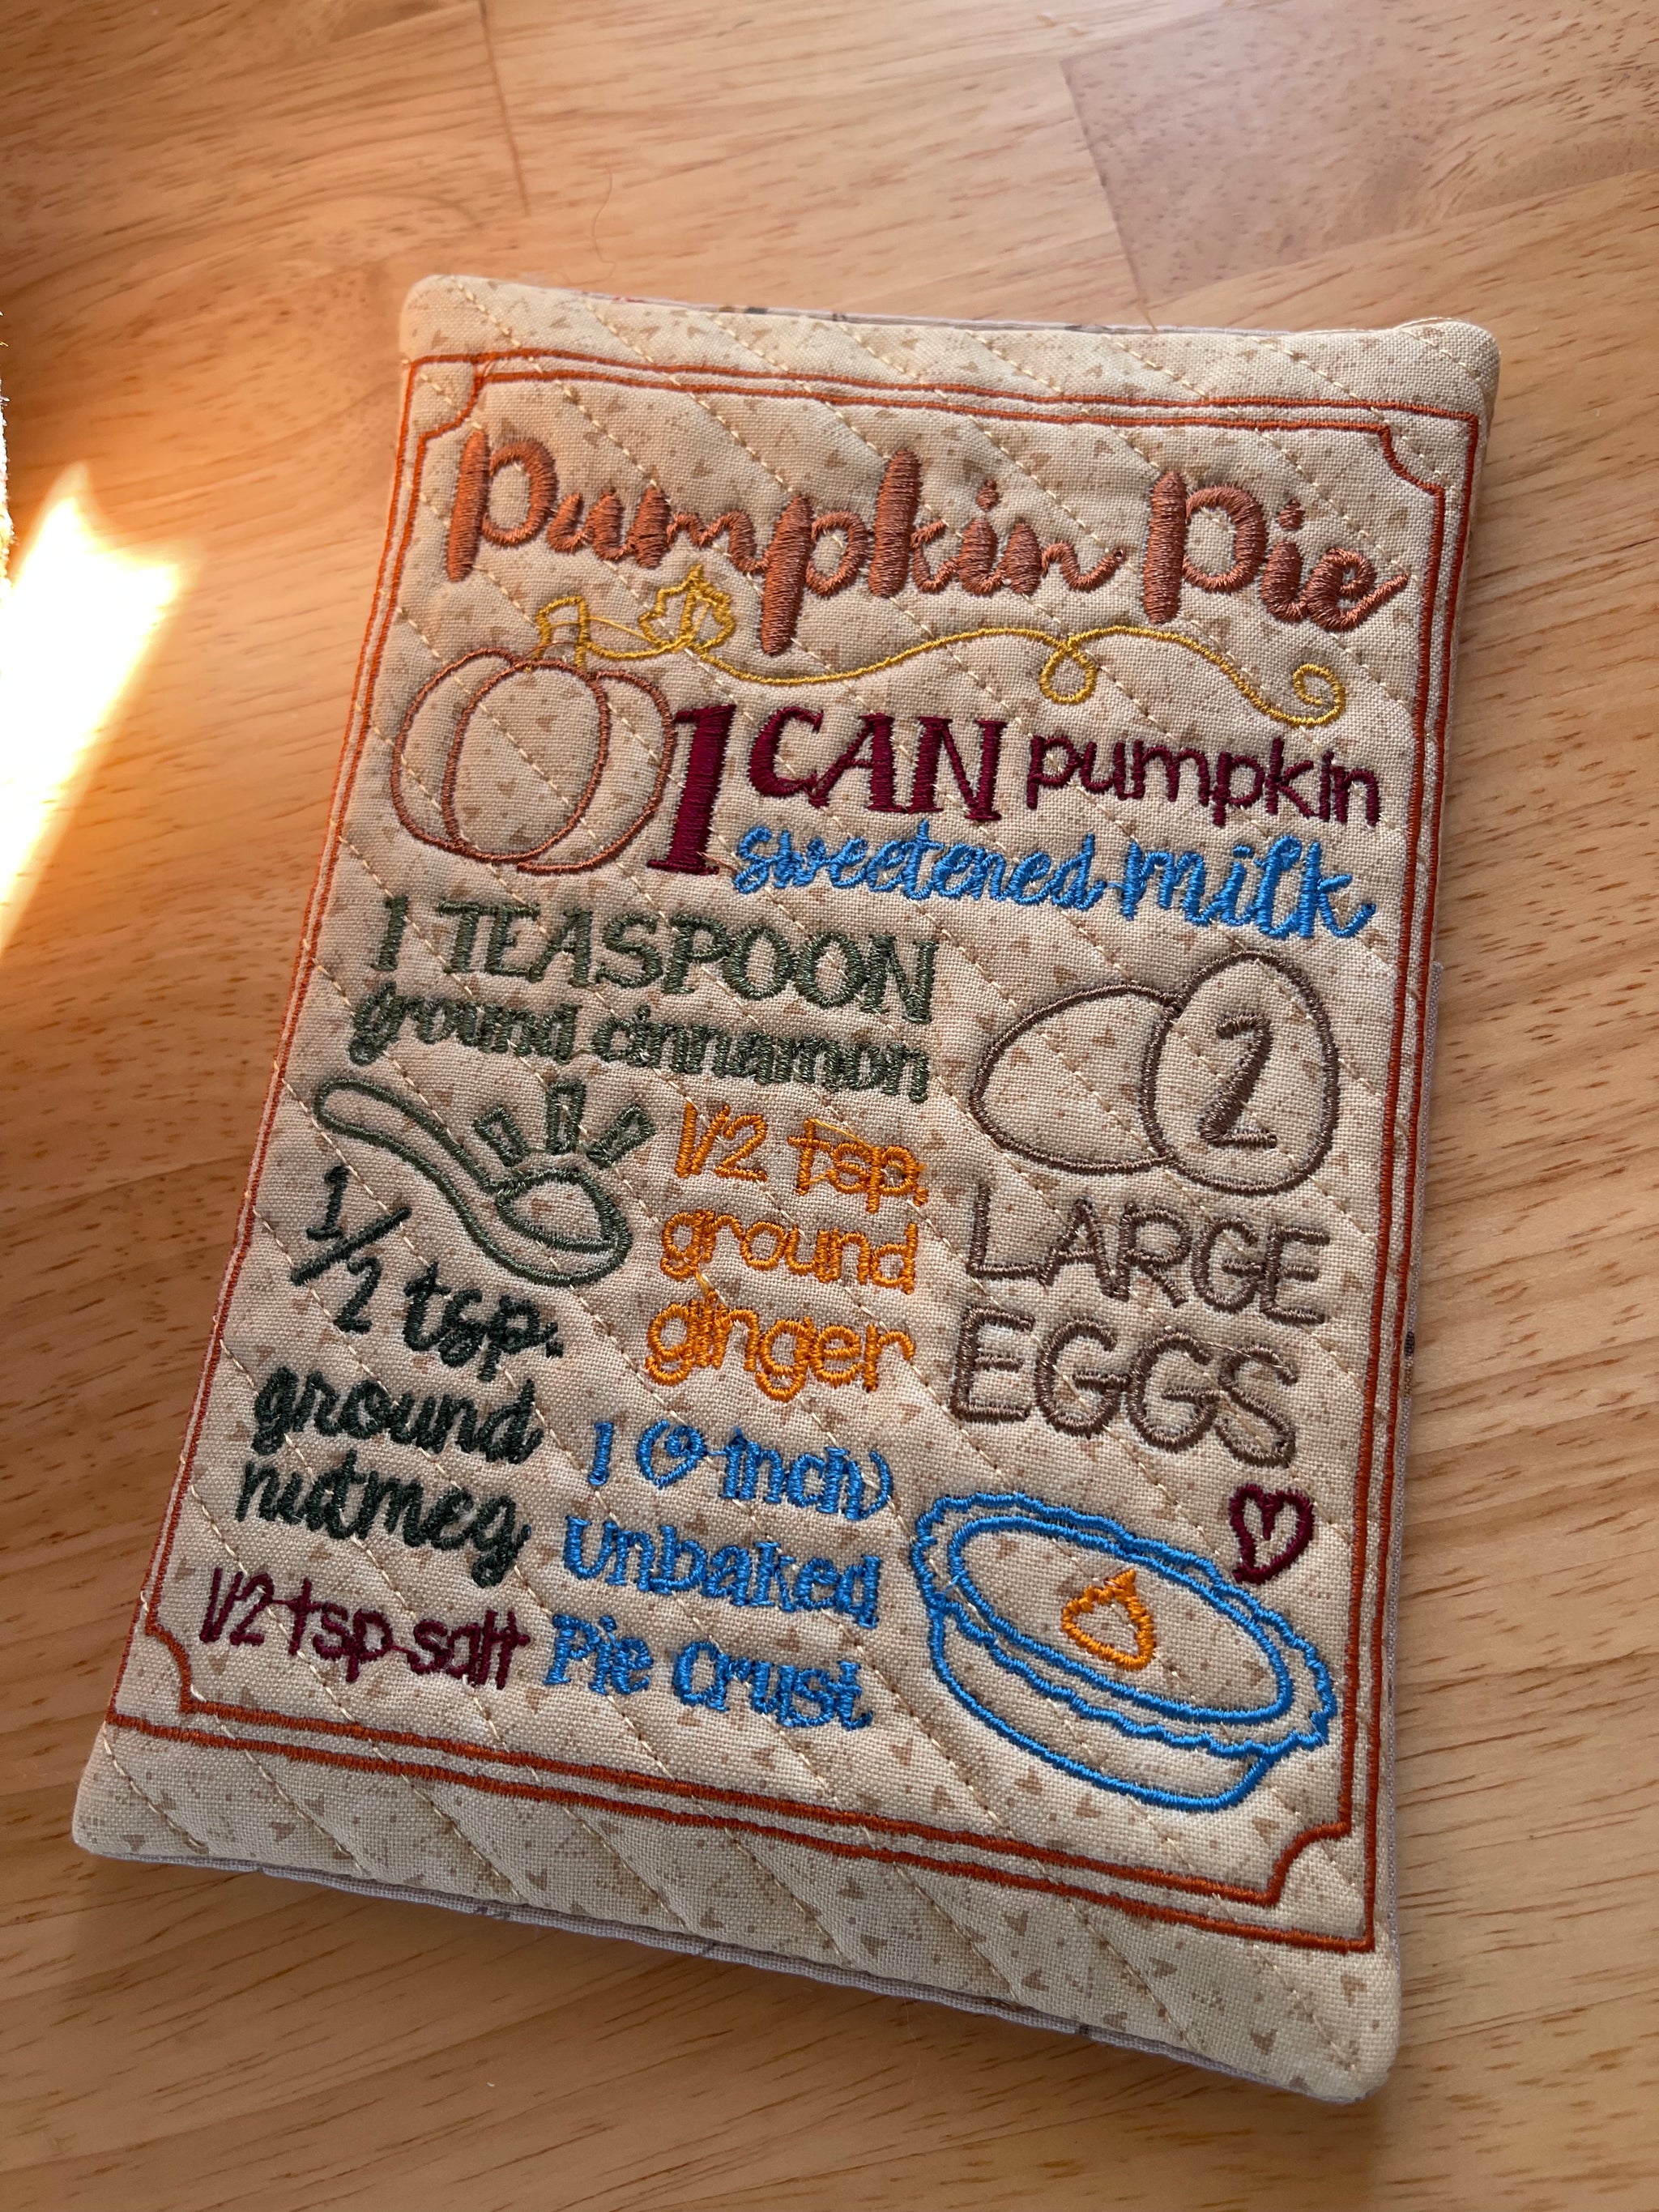 Pumpkin Pie
1 CAN pumpkin
sweetened milk
1 TEASPOON
ground cinnamon
2
LARGE
EGGS
1/2 tsp.
ground
ginger
1/2 tsp.
ground
nutmeg
1 (9-inch)
Unbaked
Pie Crust
1/2 tsp salt